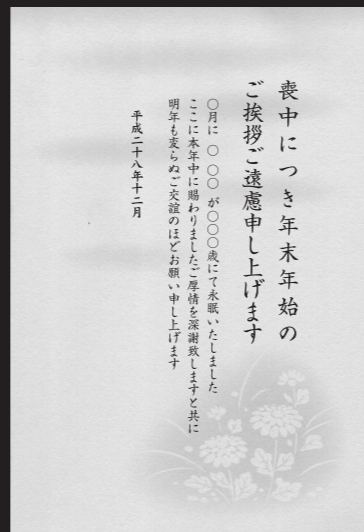 喪中につき年末年始の
ご挨拶ご遠慮申し上げます
〇月に 〇 〇〇 が〇〇〇歳にて永眠いたしました
ここに本年中に賜わりましたご厚情を深謝致しますと共に
明年も変らぬご交誼のほどお願い申し上げます
平成二十八年十二月